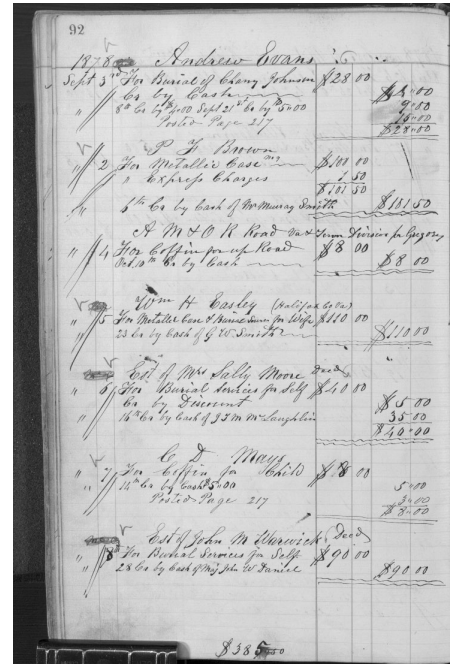 92
1878 Andrew Evans
Sept 3rd For Burial of Chany Johnson $28 00
Cr by Cash $4"00
8th Cr by $9"00 Sept 21st Cr by $15"00 9"00
Posted Page 217 15"00
$28"00
P F Brown
" 2 For Metallic Case $100 00
" Express Charges 1 50
$101 50
" 6th Cr by Cash of Mr Murray Smith $101 50
A M & O R Road Va & Tenn Division for Gregory
" 4 For Coffin for up Road $8 00
Oct 10th Cr by Cash $8 00
Wm H Easley (Halifax Co Va)
" 5 For Metallic Case & Burial Services for Wife $110 00
23 Cr by Cash of G W Smith $110"00
Est of Mrs Sally Moore Deed
" 6 For Burial Services for Self $40 00
Cr by Discount $5 00
" 16th Cr by Cash of J T M McLaughlin 35 00
$40"00
C D Mays
" 7 For Coffin for Child $8 00
14th Cr by Cash $5"00 5"00
Posted Page 217 3"00
$8"00
Est of John M Warwick (Deed)
" 8th For Burial Services for Self $90 00
" 28 Cr by Cash of Maj John W Daniel $90 00